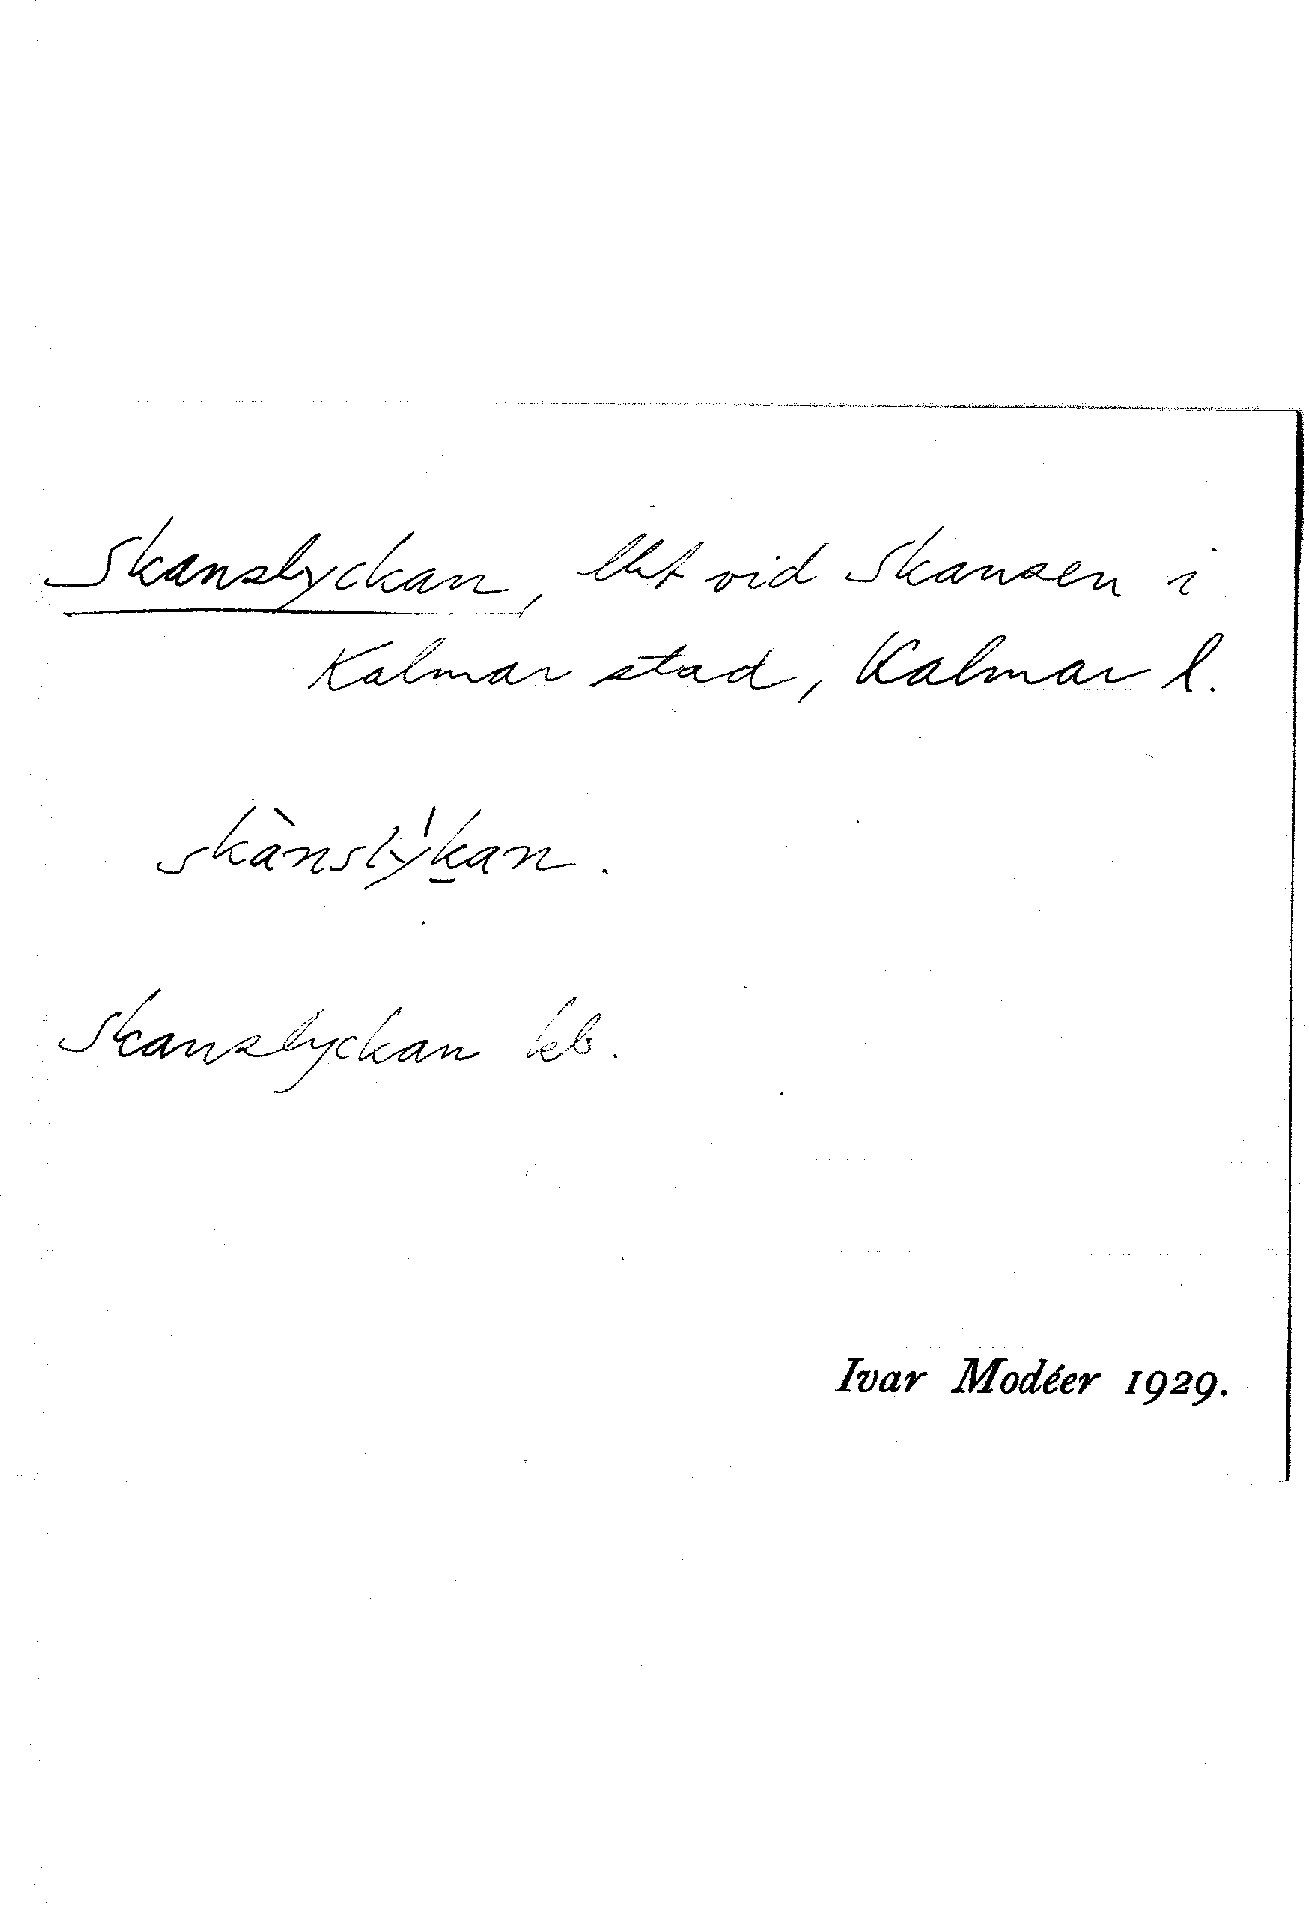 Skanslyckan, lht vid Skansen i
Kalmar stad, Kalmar l.
skànslýkan.
Skanslyckan kb.
Ivar Modéer 1929.